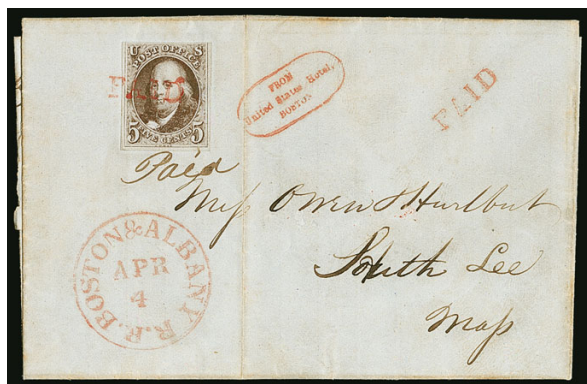 U S
POST OFFICE
FIVE CENTS
5 5
PAID
FROM
United States Hotel,
BOSTON
PAID
Paid
Miss Owen & Hurlbut
South Lee
Mass
BOSTON & ALBANY R.R.
APR
4